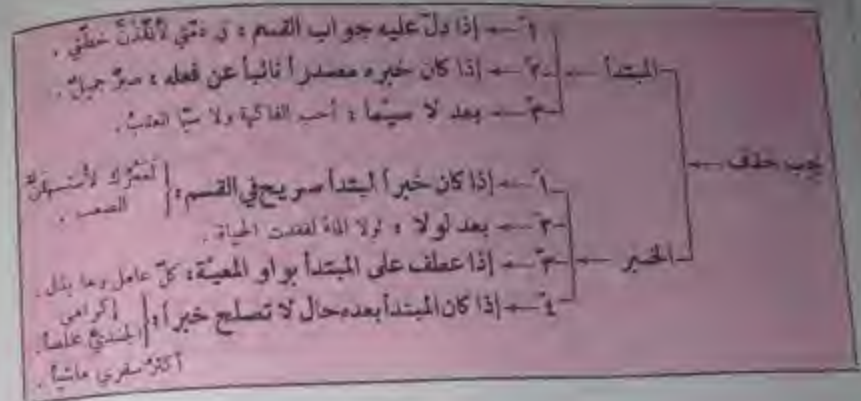 يجب حذف
المبتدأ
١ - إذا دلّ عليه جواب القسم : في ذمّتي لأنفّذنّ خطّتي .
٢ - إذا كان خبره مصدراً نائباً عن فعله : صبرٌ جميلٌ .
٣ - بعد لا سيّما : أحب الفاكهة ولا سيّما العنبُ .
الخبر
١ - إذا كان خبراً لمبتدأ صريح في القسم : لَعَمْرُك لأستسهلنّ
الصعب .
٢ - بعد لولا : لولا الماءُ لفقدت الحياة .
٣ - إذا عطف على المبتدأ بواو المعيّة : كلّ عامل وما بذل .
٤ - إذا كان المبتدأ بعده حال لا تصلح خبراً : إكرامي
الجنديَّ مخلصاً .
أكثرُ سفري ماشياً .